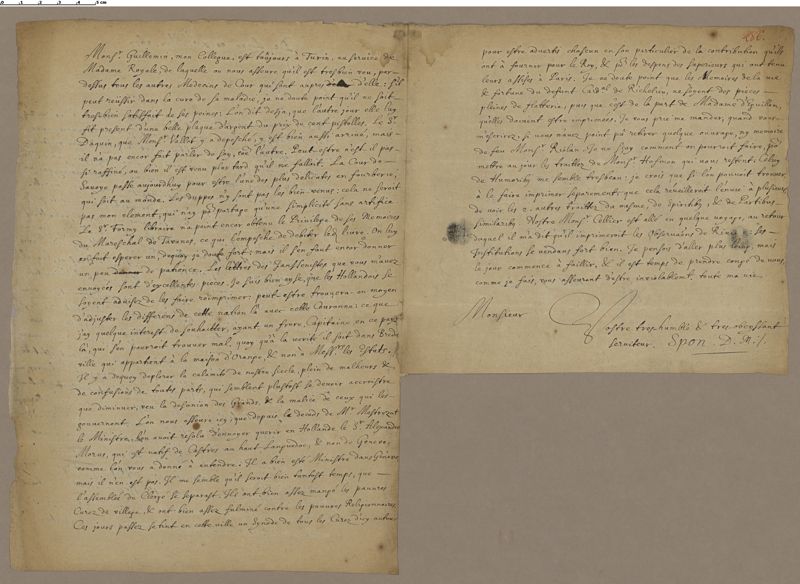 Monsr. Guillemin, mon Collegue, est tousjours à Turin, au service de
Madame Royale, de laquelle on nous asseure qu'il est tres bien veu, par
dessus tous les autres Medecins de Cour qui sont aupres d'elle: s'il
peut reussir dans la cure de sa maladie, je ne doute point qu'il ne soit
tres bien satisfait de ses peines: L'on dit desja, que l'autre jour elle luy
fit present d'une belle plaque d'argent du prix de cent pistolles. Le Sr.
Daquin, que Monsr. Vallot y a depesché, y est bien aussi arrivé, mais
il n'a pas encor fait parler de soy, coe l'autre. Peut estre n'est il pas
si raffiné, ou bien il est venu plus tard qu'il ne falloit. La Cour de
Savoye passe aujourdhuy pour estre l'une des plus delicates en fourberie,
qui soit au monde. Les duppes n'y sont pas les bien venus: cela ne seroit
pas mon element, qui n'ay pû partage qu'une simplicité sans artifice
Le Sr. Fourmy libraire n'a point encor obtenu le Privilege de ses Memoires
du Mareschal de Tavanes, ce qui l'empesche de debiter led. livre. On luy
un peu de patience. Les lettres des Jansenistes que vous m'avez
envoyées sont d'excellentes pieces. Je suis bien ayse, que les Hollandois se
soyent advisez de les faire reimprimer: peut estre trouvera on moyen
d'adjuster les differens de cette nation là avec cette Couronne: ce que
j'ay quelque interest de souhaitter, ayant un frere Capitaine en ce pays
là, qui s'en pourroit trouver mal, quoy qu'à la verité il soit dans Breda
ville qui appartient à la maison d'Orange, & non à Messrs. les Estats.
Il y a dequoy deplorer la calamité de nostre siecle, plein de malheurs &
de confusions de toutes parts, qui semblent plustost se devoir accroistre
que diminuer, veu la desunion des Grands, & la malice de ceux qui les
gouvernent. L'on nous asseure icy, que depuis le decés de Mr. Mestrezat
le Ministre, l'on avoit resolu d'envoyer querir en Hollande le Sr. Alexandre
Morus, qui est natif de Castres au haut Languedoc, & non de Geneve,
comme l'on vous a donné à entendre. Il a bien esté Ministre dans Geneve
mais il n'en est pas. Il me semble qu'il seroit bien tantost temps, que
l'assemblée du Clergé se separast. Ils ont bien assez mangé les pauvres
Curez de village, & ont bien assez fulminé contre les pauvres Religionnaires.
Ces jours passez se tint en cette ville un Synode de tous les Curez d'icy autour
286.
pour estre advertis chascun en son particulier de la contribution qu'ils
ont à fournir pour le Roy, & pr. les despens des superieurs qui ont tenu
leurs assises à Paris. Je ne doute point que les Memoires de la vie
& fortune du defunt Cardal. de Richelieu, ne soyent des pieces
pleines de flatterie, puis que c'est de la part de Madame d'Eguillon,
qu'elles doivent estre imprimées. Je vous prie me mander, quand vous
m'escrirez, si vous n'avez point pû retirer quelque ouvrage, ny memoire
de feu Monsr. Riolan. Je ne sçay comment on pourroit faire, pr.
mettre au jour les traittez de Monsr. Hofman qui nous restent: Celuy
de Humoribus me semble trop beau: je crois que si l'on pouvoit trouver
à le faire imprimer separement, que cela reveilleroit l'envie à plusieurs
de voir les 2. autres traittez du mesme, de Spiritibus, & de Partibus
similaribus. Nostre Monsr. Cellier est allé en quelque voyage, au retour
duquel il m'a dit qu'il imprimeroit les Observations de ses
Institutions se vendans fort bien. Je pensois d'aller plus loing, mais
le jour commence à faillir, & il est temps de prendre congé de vous
comme je fais, vous asseurant d'estre inviolablemt. toute ma vie
Monsieur
Vostre tres humble & tres obeissant
serviteur. Spon. D. M.